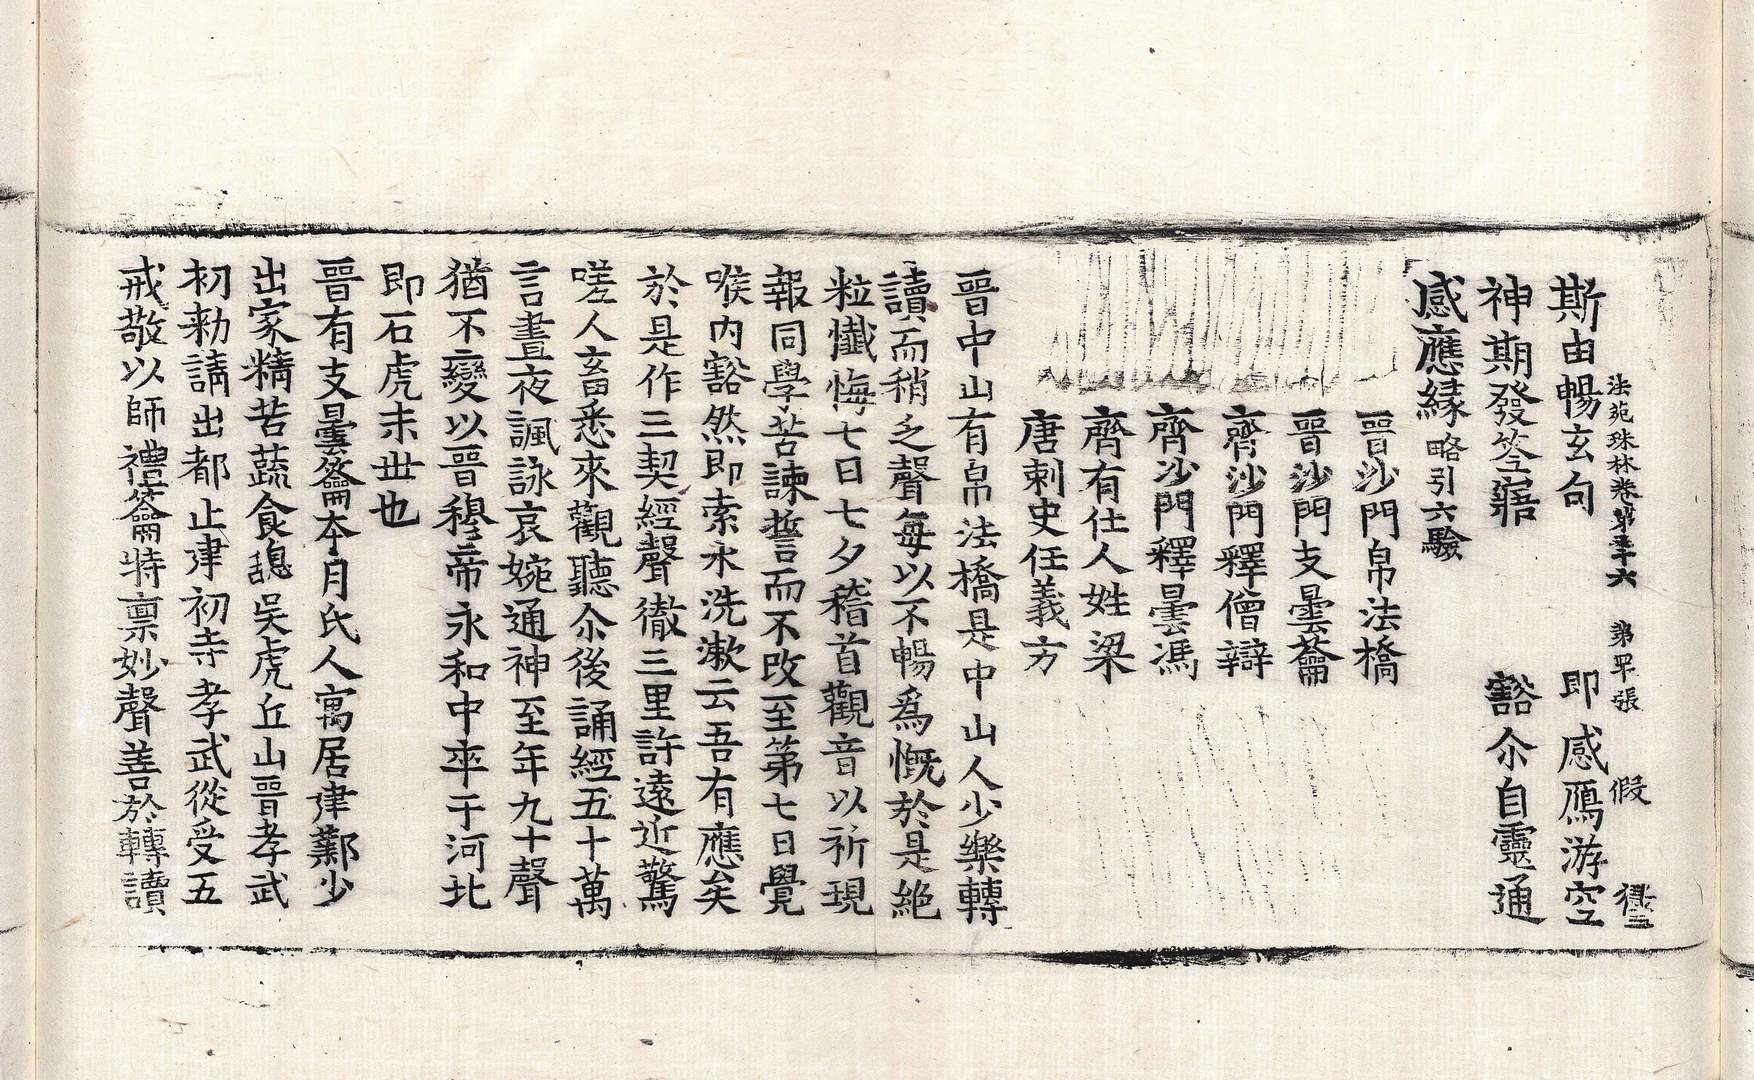 法苑珠林卷第三十六 第罕張 假
斯由暢玄句 即感鴈游空
神期發筌寤 豁尒自靈通
感應緣略引六驗
晉沙門帛法橋
晉沙門支曇籥
齊沙門釋僧辯
齊沙門釋曇馮
齊有仕人姓梁
唐刺史任義方
晉中山有帛法橋是中山人少樂轉
讀而稍乏聲每以不暢爲慨於是絕
粒懺悔七日七夕稽首觀音以祈現
報同學苦諫誓而不改至第七日覺
喉內豁然即索水洗漱云吾有應矣
於是作三契經聲徹三里許遠近驚
嗟人畜悉來觀聽尒後誦經五十萬
言晝夜諷詠哀婉通神至年九十聲
猶不變以晉穆帝永和中卒于河北
即石虎末世也
晉有支曇籥本月氏人寓居建鄴少
出家精苦蔬食憩吳虎丘山晉孝武
初勑請出都止建初寺孝武從受五
戒敬以師禮籥特禀妙聲善於轉讀